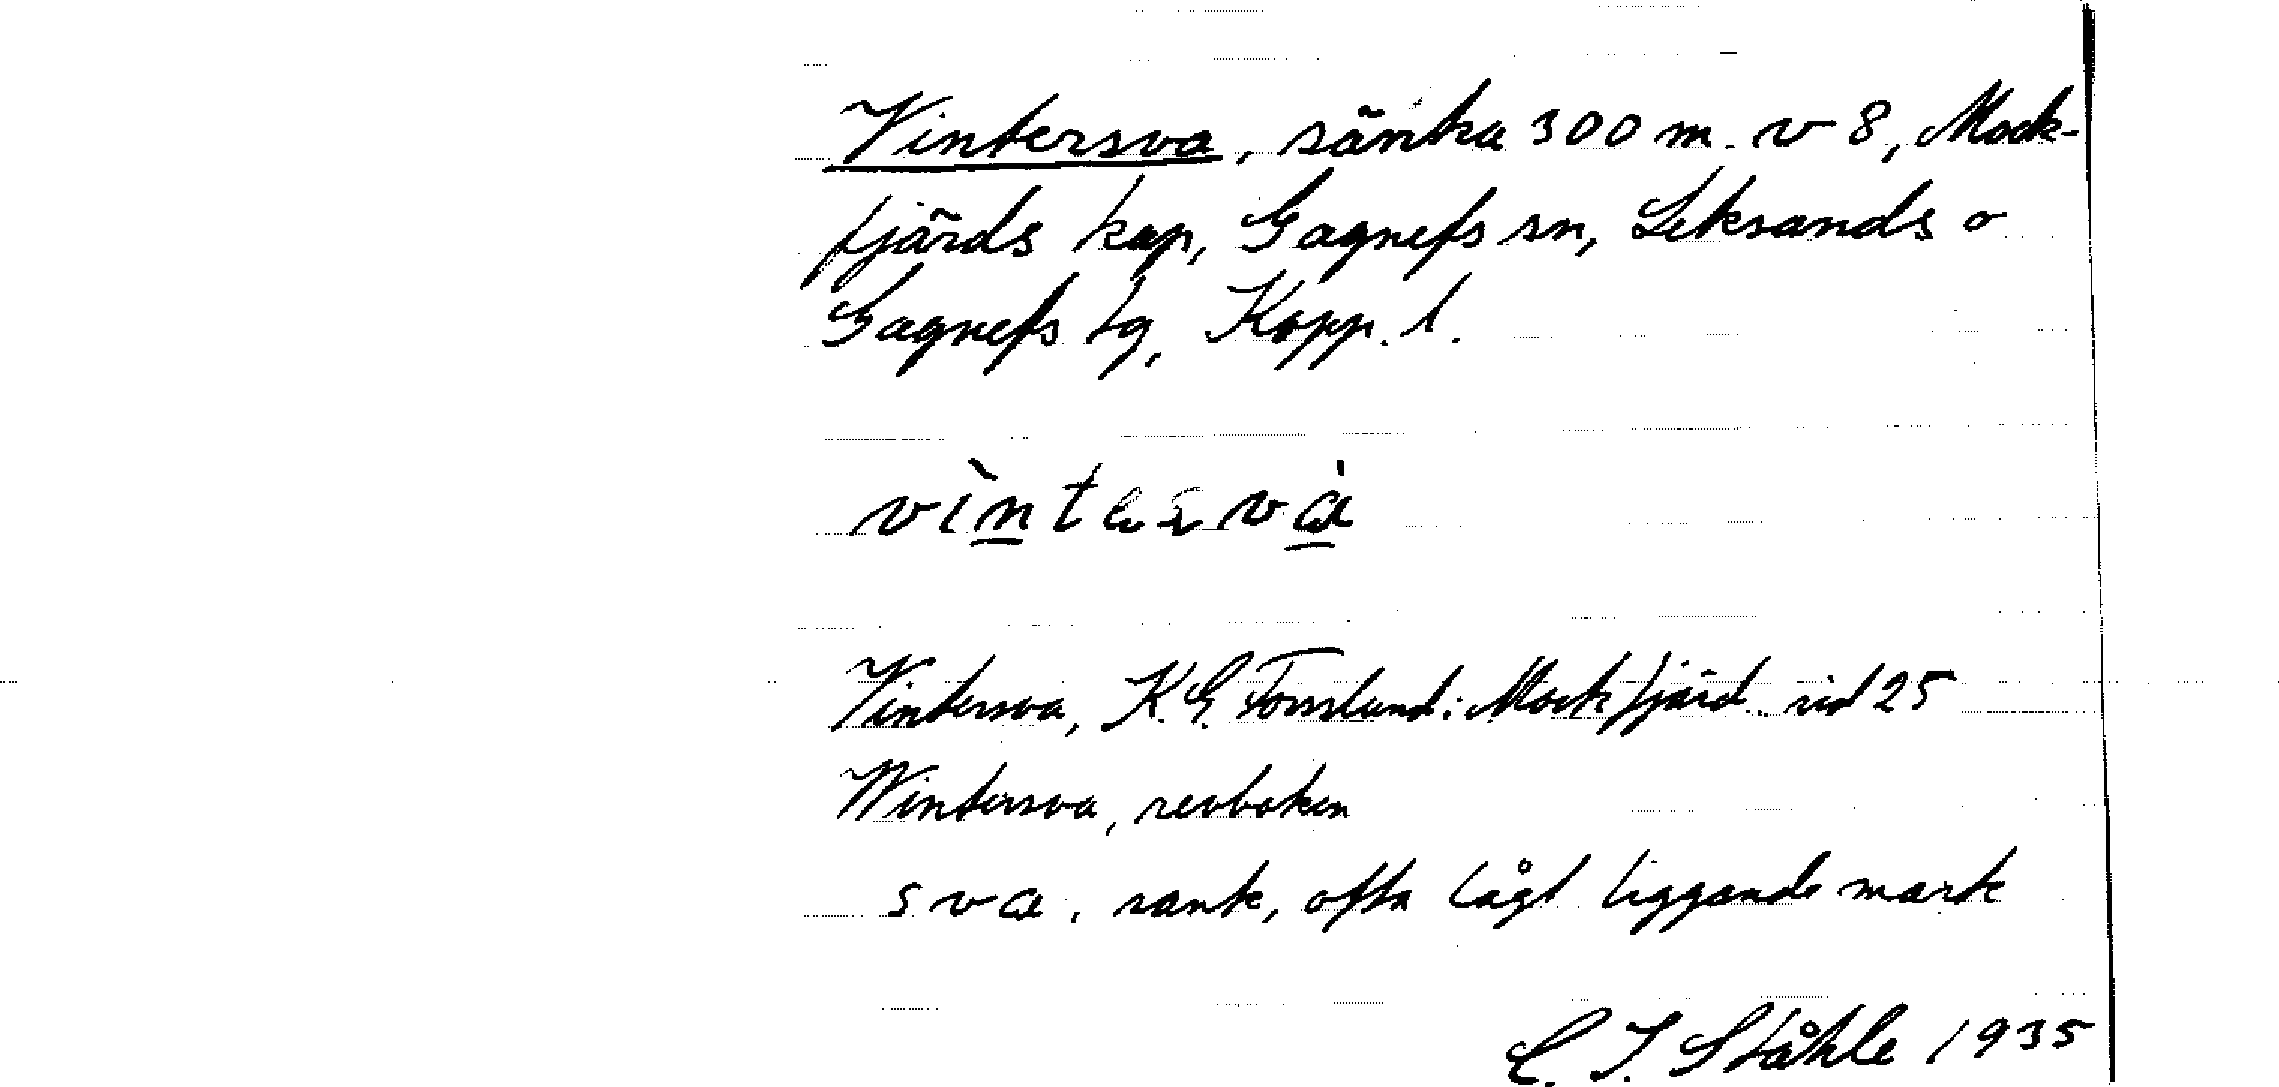 Vintersva, sänka 300 m. v 8, Mock-
fjärds kap, Gagnefs sn, Leksands o
Gagnefs tg, Kopp. l.
Vintersva, K.G. Forsslund: Mockfjärd sid 25
Wintersva, revboken
sva, sank, ofta lågt liggande mark
C. I. Ståhle 1935